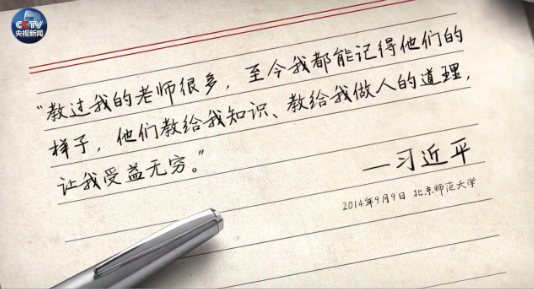 CCTV
央视新闻
“教过我的老师很多，至今我都能记得他们的
样子，他们教给我知识、教给我做人的道理，
让我受益无穷。”
—习近平
2014年9月9日 北京师范大学